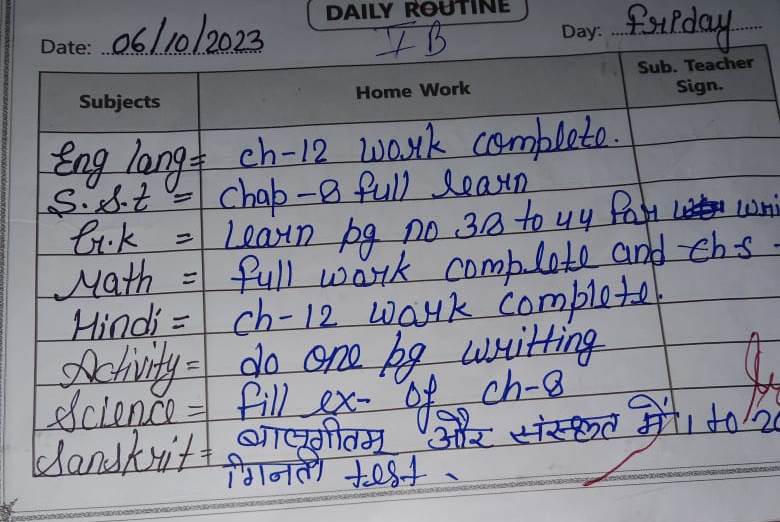 DAILY ROUTINE
Date: 06/10/2023 I B Day: Friday
Subjects Home Work Sub. Teacher Sign.
Eng lang = ch-12 work complete.
S.S.t = chap-8 full learn
G.K = Learn pg no 38 to 44 for wri
Math = full work complete and ch-5
Hindi = ch-12 work complete.
Activity = do one pg writting
Science = fill ex- of ch-8
Sanskrit = बालगीतम और संस्कृत में 1 to 20
गिनती test.